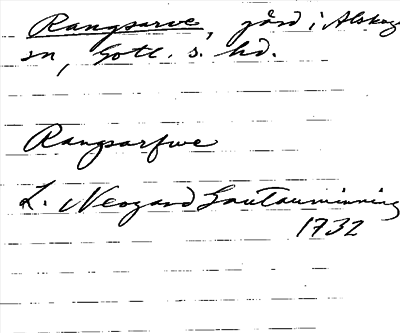 Rangsarve, gård i Alskogs
sn, Gotl. s. hd.
Rangsarfwe
L. Neogard Gautauminning
1732